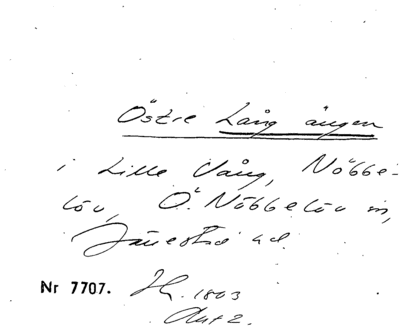 Östre Lång ängen
i Lille Vång, Nöbbe-
löv, Ö. Nöbbelöv sn,
Järrestad hd.
Nr 7707. Hh. 1803
Akt 2.